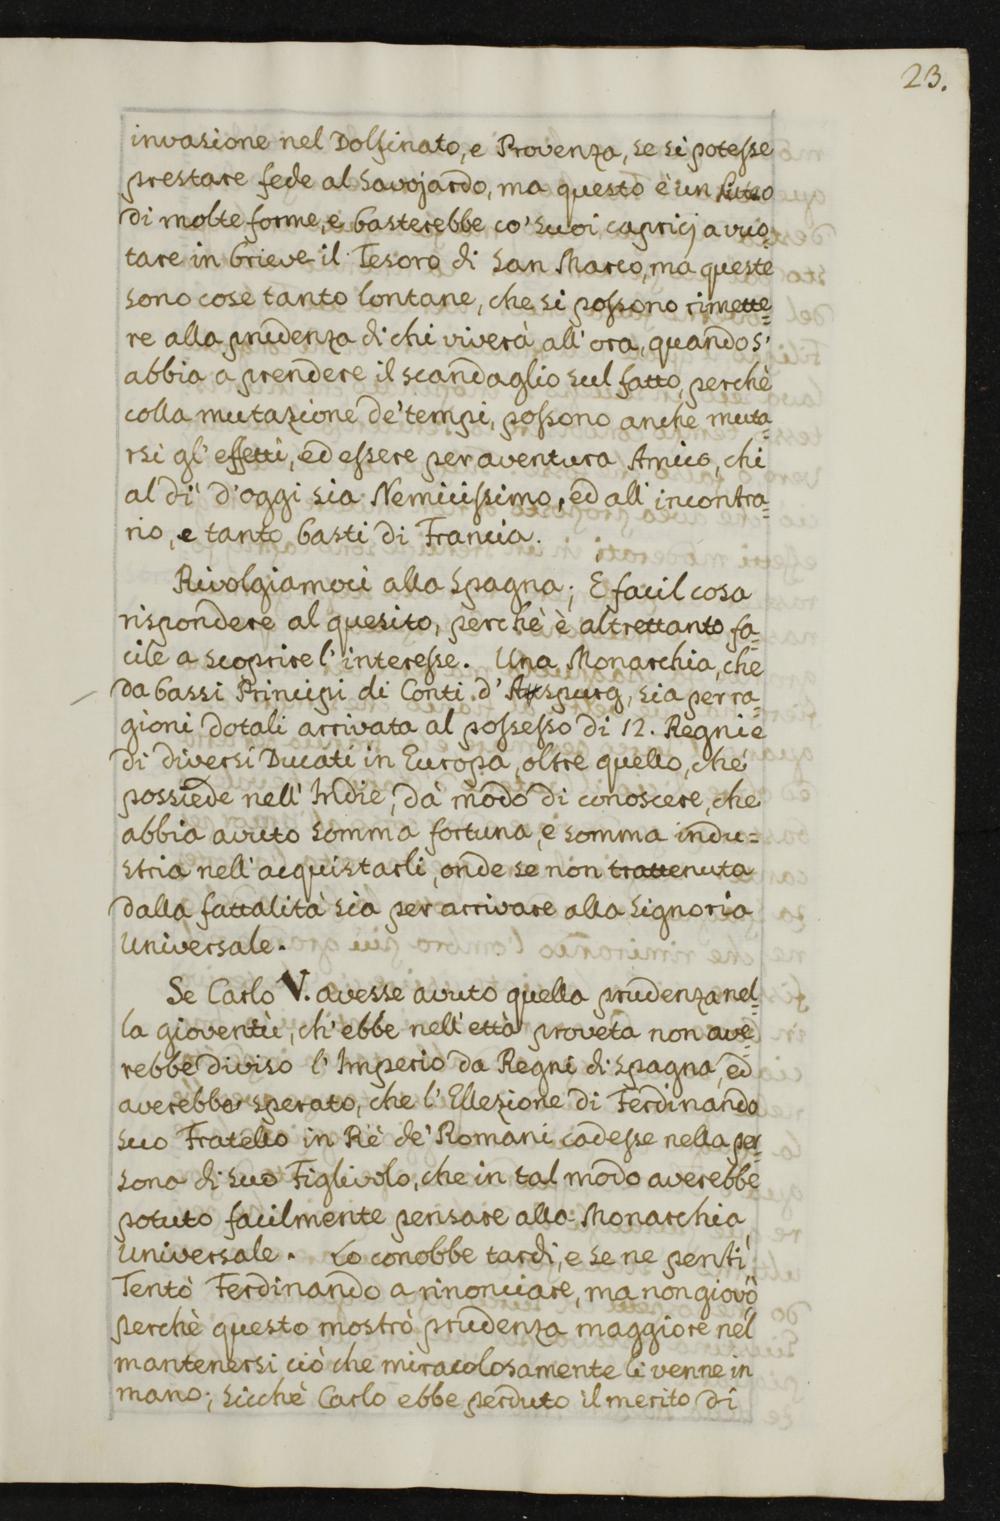 23.
invasione nel Dolfinato, e Provenza, se si potesse
prestare fede al Savojardo, ma questo è un
di molte forme, e basterebbe co' suoi capricj a vuo=
tare in brieve il Tesoro di San Marco, ma queste
sono cose tanto lontane, che si possono rimette=
re alla prudenza di chi viverà all' ora, quando s'
abbia a prendere il scandaglio sul fatto, perchè
colla mutazione de' tempi, possono anche muta=
rsi gl' effetti, ed essere per aventura Amico, chi
al dì d'oggi sia Nemicissimo, ed all' incontra=
rio, e tanto basti di Francia.
Rivolgiamoci alla Spagna; E facil cosa
rispondere al quesito, perchè è altrettanto fa=
cile a scoprire l'interesse. Una Monarchia, che
da bassi Principi di Conti d' Auspurg, sia per ra=
gioni dotali arrivata al possesso di 12. Regni e
di diversi Ducati in Europa, oltre quello, che
possiede nell' Indie, dà modo di conoscere, che
abbia avuto somma fortuna, e somma indu=
stria nell' acquistarli, onde se non trattenuta
dalla fattalità sia per arrivare alla Signoria
Universale.
Se Carlo V. avesse avuto quella prudenza nel=
la gioventù, ch' ebbe nell' ettà proveta non ave=
rebbe diviso l' Imperio da Regni di Spagna, ed
averebbe sperato, che l' Ellezione di Ferdinando
suo Fratello in Rè de' Romani cadesse nella per=
sona di suo Figlivolo, che in tal modo averebbe
potuto facilmente pensare alla Monarchia
Universale. Lo conobbe tardi, e se ne pentì
Tentò Ferdinando a rinonciare, ma non giovò
perchè questo mostrò prudenza maggiore nel
mantenersi ciò che miracolosamente li venne in
mano; sicchè Carlo ebbe perduto il merito di